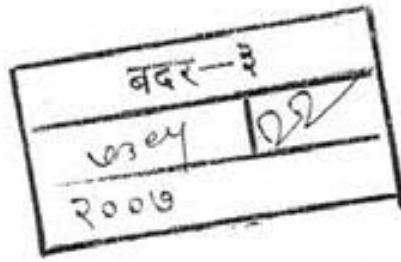 बदर-३
७३८५ २२
२००७